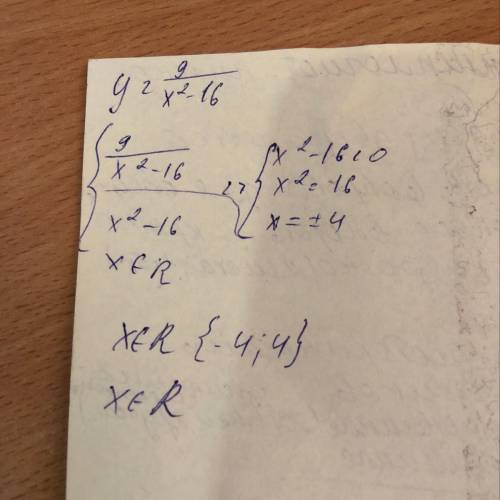 y = 9/(x² - 16)
{ 9/(x² - 16)
x² - 16 <=> { x² - 16 = 0
x² = 16
x = ±4
x ∈ R
x ∈ R {-4; 4}
x ∈ R